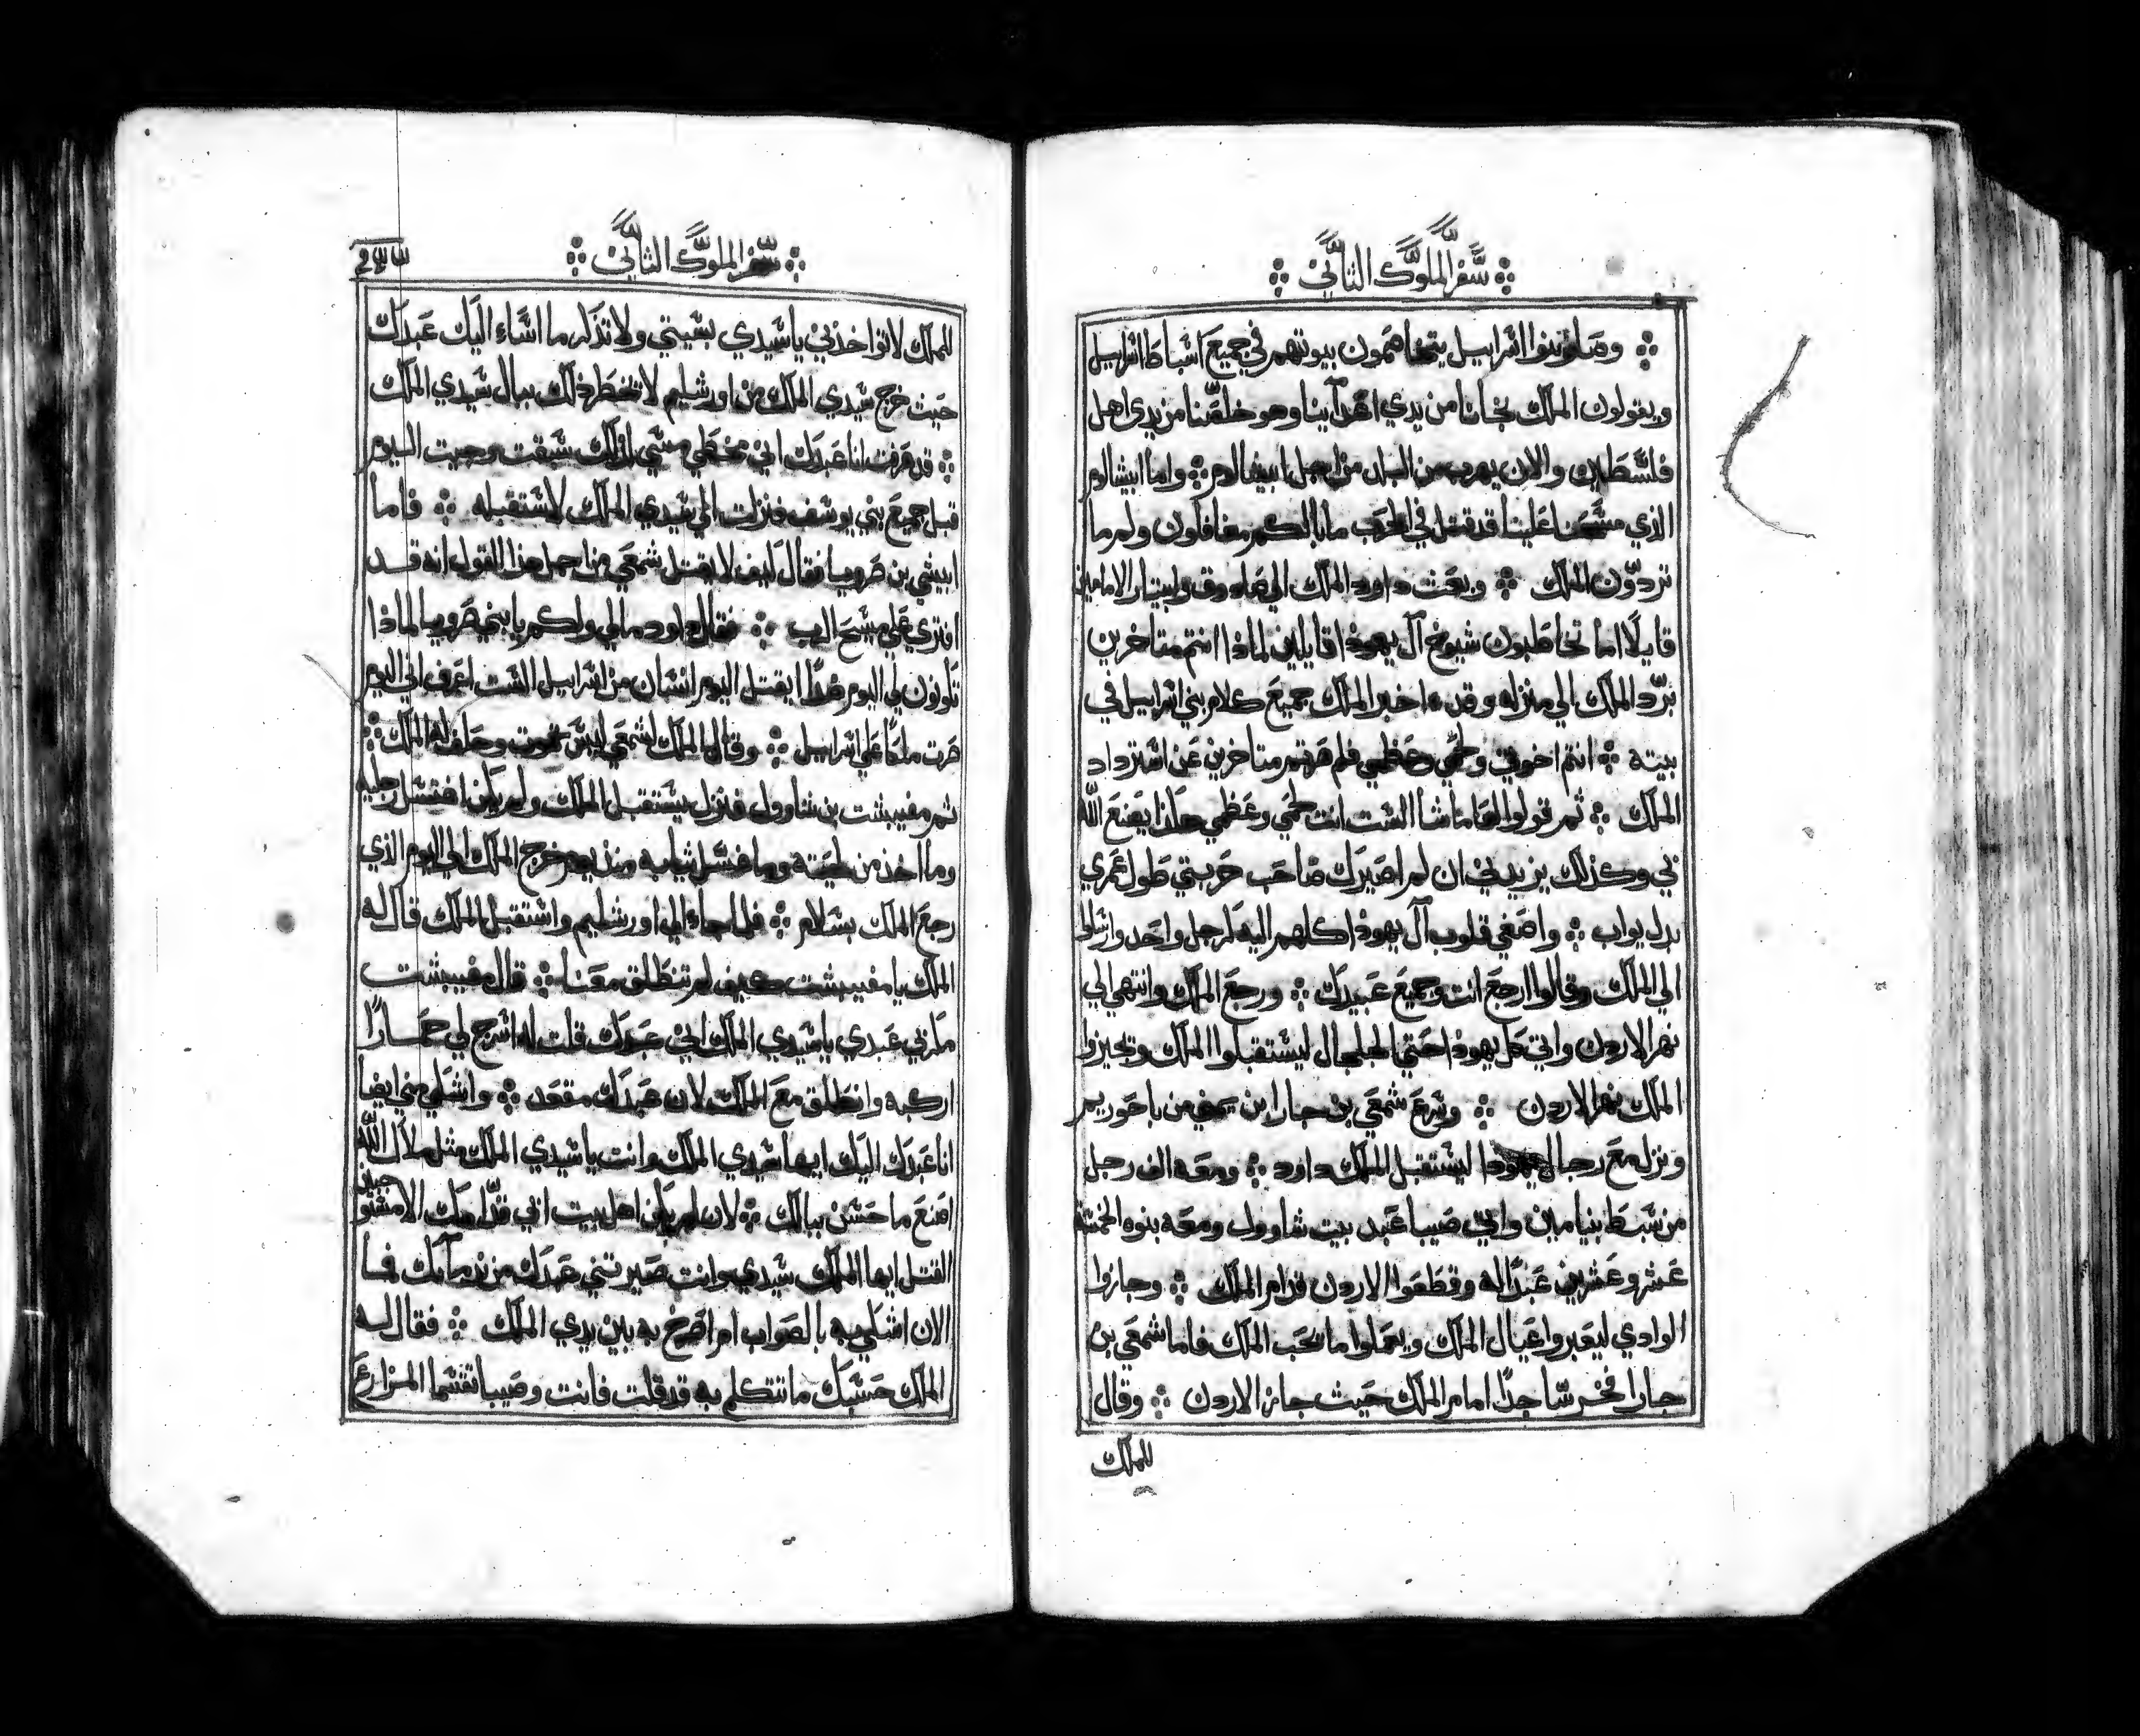 سفر الملوك الثاني
وصار بنوا اسراييل يتخاصمون بيوتهم في جميع اسباط اسراييل
ويقولون الملك نجانا من يدي اعدآينا وهو خلصنا من يدي اهل
فلسطين والان يهرب من البلد من اجل ابيشالوم واما ابيشالوم
الذي مسحنا علينا قد قتل في الحرب ما بالكم متغافلون ولم ما
تردون الملك وبعث داود الملك الي صادوق وابيتار الامامين
قايلًا اما تخاطبون شيوخ آل يهوذا قايلين لماذا انتم متاخرين
برد الملك الي منزله وقد اخبر الملك جميع كلام بني اسراييل في
بيته انتم اخوتي ولحمي وعظمي فلم صرتم متاخرين عن استرداد
الملك ثم قولوا لعاماشا الست انت لحمي وعظمي هكذا يصنع الله
بي وكذلك يزيدني ان لم اصيرك صاحب حربتي طول عمري
بدل يواب واصغي قلوب آل يهوذا كلهم اليه كرجل واحد وارسلوا
الي الملك وقالوا ارجع انت وجميع عبيدك ورجع الملك وانتهي الي
نهر الاردن واتي كل يهوذا حتي الجلجال ليستقبلوا الملك وتجيزوا
الملك نهر الاردن وسرع شمعي بن جارا ابن يميني من باحوريم
ونزل مع رجال يهوذا ليستقبل الملك داود ومعه الف رجل
من سبط بنيامين واتي صيبا عبد بيت شاوول ومعه بنوه الخمسة
عشر وعشرين عبدًا له وقطعوا الاردن قدام الملك وجازوا
الوادي ليعبروا عيال الملك ويعملوا ما يحب الملك فاما شمعي بن
جارا فخر ساجدًا امام الملك حيث جاز الاردن وقال
للملك
سفر الملوك الثاني
للملك لا تواخذني يا سيدي بسيتي ولا تذكر ما اساء اليك عبدك
حيث خرج سيدي الملك من اورشليم لا تخطر ذلك ببال سيدي الملك
قد عرفت انا عبدك اني مخطي مسي لذلك سبقت وجيت اليوم
قبل جميع بني يوسف فنزلت الي سيدي الملك لاستقبله فاما
ابيشي بن صرويا فقال كيف لا يقتل شمعي من اجل هذا القول انه قد
افتري علي مسيح الرب فقال داود مالي ولكم يا بني صرويا لماذا
تكونون لي اليوم ضدًا ايقتل اليوم انسان من اسراييل الست اعرف اني اليوم
صرت ملكًا علي اسراييل وقال الملك لشمعي ليس تموت وحلف له الملك
ثم مفيبشت بن شاوول فنزل يستقبل الملك ولم يكن اغتسل رجليه
وما اخذ من لحيته وما غسل ثيابه منذ يوم خرج الملك الي اليوم الذي
رجع الملك بسلام فلما جاء الي اورشليم واستقبل الملك قال له
الملك يا مفيبشت كيف لم تنطلق معنا قال مفيبشت
مكر بي عبدي يا سيدي الملك اني عبدك قلت له اسرج لي حمارًا
اركبه وانطلق مع الملك لان عبدك مقعد وانسلي مني ايضا
انا عبدك اليك ايها سيدي الملك وانت يا سيدي الملك مثل ملاك الله
اصنع ما حسن ببالك لان لم يكن اهل بيت ابي قدامك الا مستوجبين
القتل ايها الملك سيدي وانت صيرتني عبدك من ندمآيك فما
الان اشكي به بالصواب ام اصرخ به بين يدي الملك فقال له
الملك حسبك ما تتكلم به قد قلت فانت وصيبا تقتسما المزارع